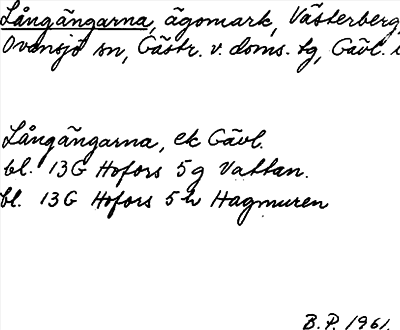 Långängarna, ägomark, Västerberg,
Ovansjö sn, Gästr. v. doms. tg, Gävl. l
Långängarna, ek Gävl.
bl. 13G Hofors 5g Vattan.
bl. 13G Hofors 5h Hagmuren
B.P. 1961.